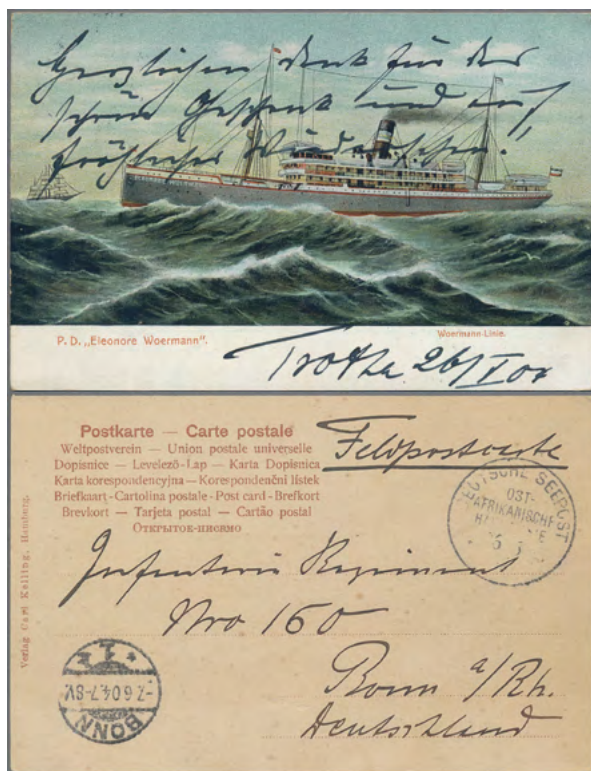 Herzlichen Dank für das
schöne Geschenk und auf
fröhliches Wiedersehen!
P. D. „Eleonore Woermann“.
Woermann-Linie.
Trotha 26/V 04
Postkarte — Carte postale
Weltpostverein — Union postale universelle
Dopisnice — Levelező-Lap — Karta Dopisnica
Karta korespondencyjna — Korespondenční lístek
Briefkaart - Cartolina postale - Post card - Brefkort
Brevkort — Tarjeta postal — Cartão postal
Открытое-письмо
Feldpostkarte
DEUTSCHE SEEPOST
OST-
AFRIKANISCHE
Infanterie Regiment
Nro 160
Bonn a/Rh.
Deutschland
Verlag Carl Kelling, Hamburg.
BONN
-7.6.04.7-8V.